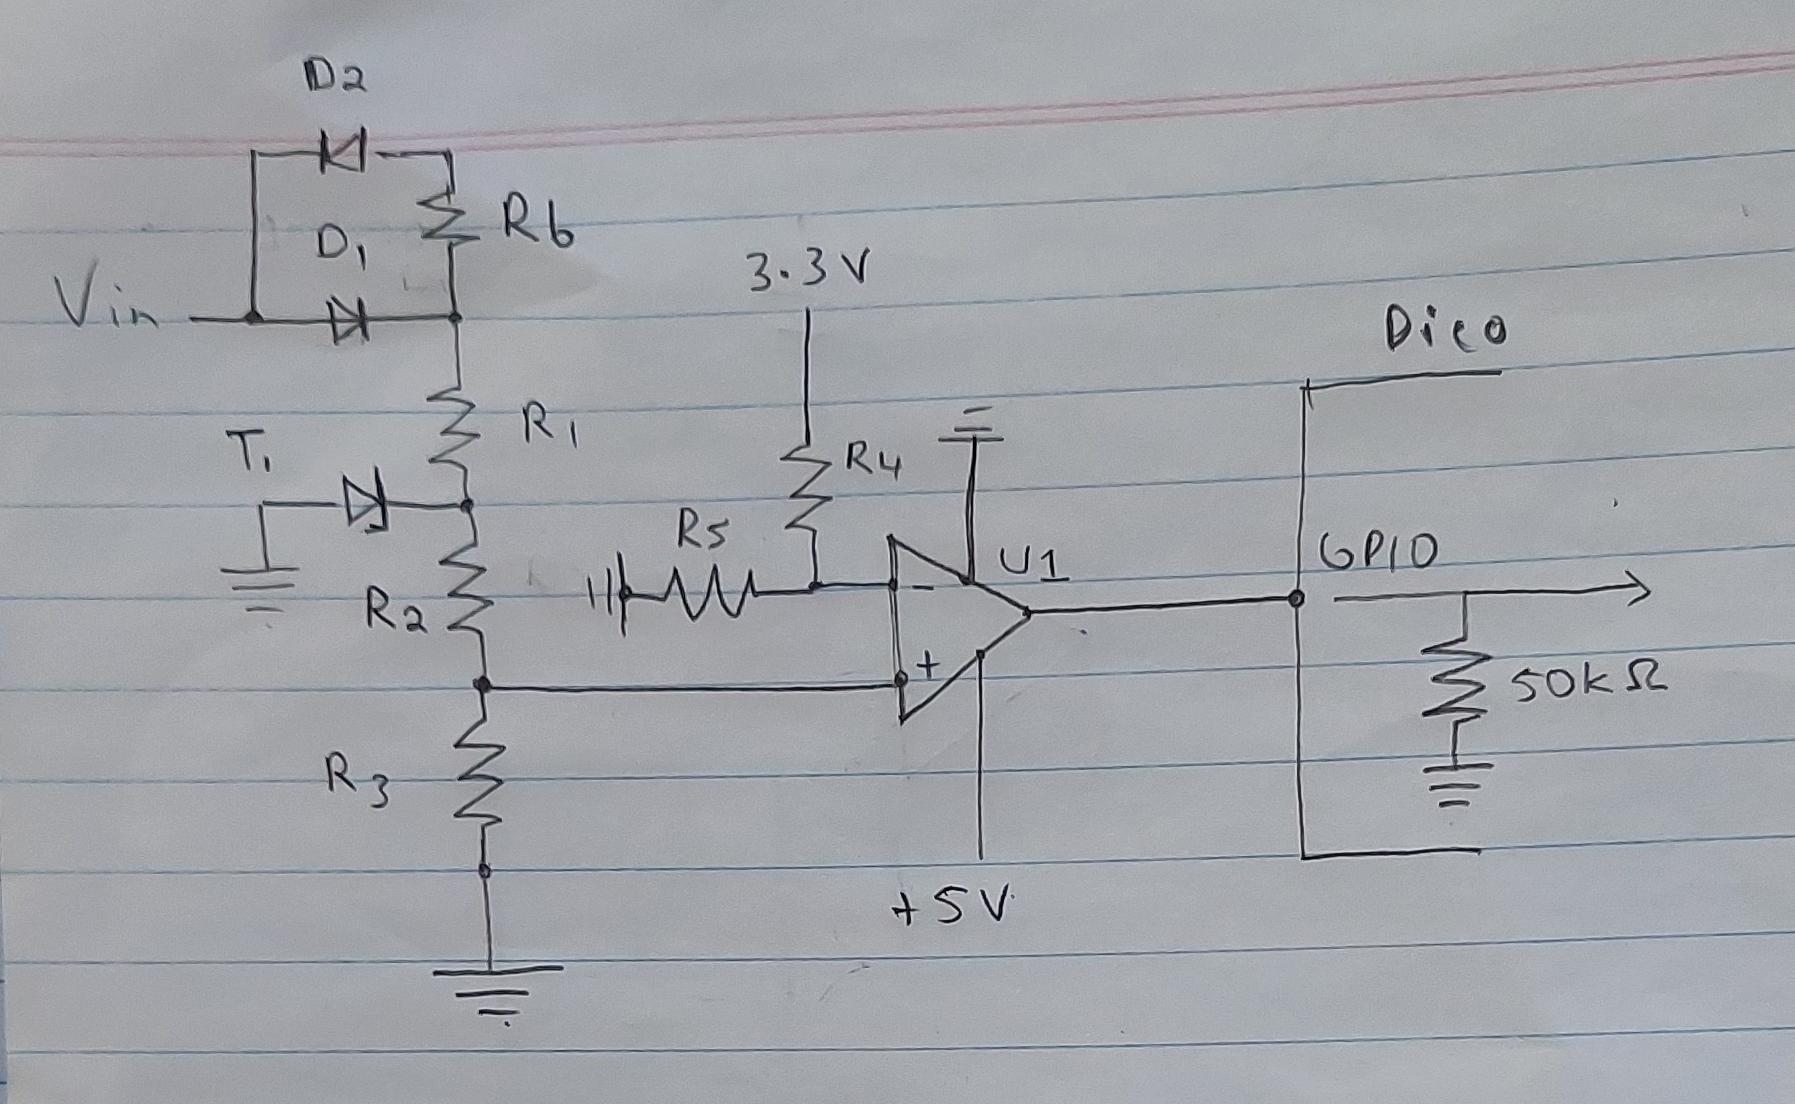 D2
R6
D1
Vin
3.3V
Dico
R1
T1
R4
R5
U1
GPIO
R2
-
+
50kΩ
R3
+5V